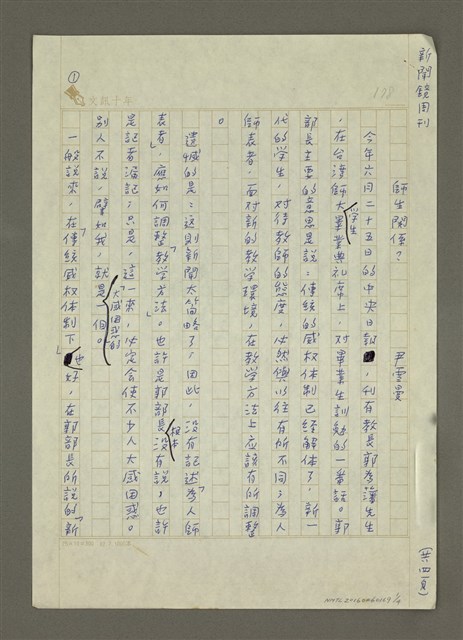 新聞鏡周刊
178
師生關係?
尹雪曼
(共四頁)
今年六月二十五日的中央日報,刊有教長郭為藩先生
,在台灣師大學生畢業典礼席上,对畢業生訓勉的一番話。郭
部長主要的意思是說:傳統的威权体制已經解体了,新一
代的学生,对待教師的態度,必然與以往有所不同;為人
師表者,面对新的教学環境,在教学方法上应該有所調整
。
遺憾的是:这則新聞太簡略了,因此,沒有記述「為人師
表者」,應如何調整「教学方法」。也許是郭部長根本沒有說,也許
是記者漏記;只是,這一來,必定会使不少人大感困惑。
別人不說,譬如我,就是大感困惑的一個。
一般說來,在「傳統威权体制下」也好,在郭部長所說的「新
①
文訊十年
NMTL20160060069 1/4